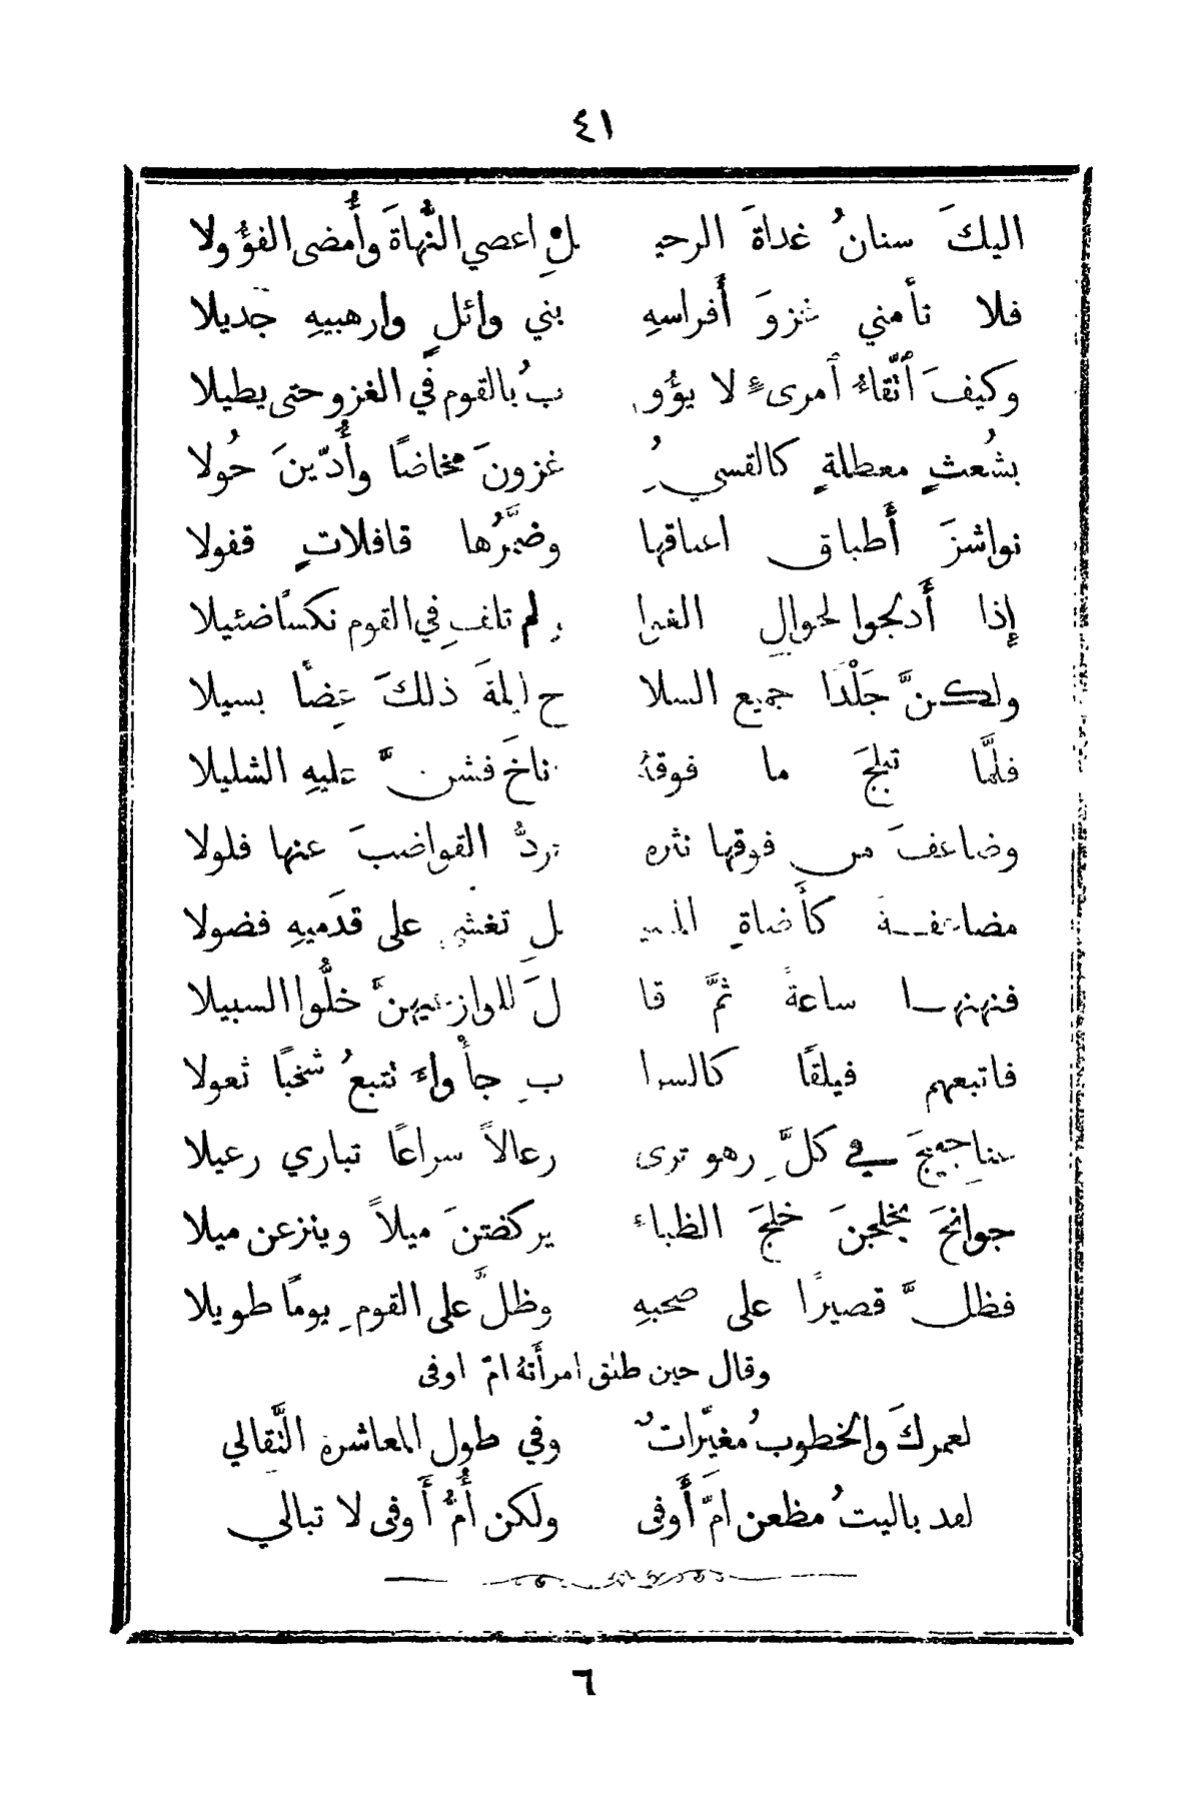 ٤١
اليكَ سنانُ غداةَ الرحيـ لِ اعصي النُّهاةَ وأُمضى الفؤُولا
فلا تأمني غزوَ أَفراسهِ بني وائلٍ وارهبيهِ جديلا
وكيفَ اتّقاءُ امرىءٍ لا يؤُو بُ بالقوم في الغزو حتى يطيلا
بشُعثٍ معطلةٍ كالقسيِّ غزونَ مخاضًا وأُدّينَ حُولا
نواشزَ أَطباق اعناقها وضمَّرُها قافلاتٍ قفولا
إذا أَدلجوا لحوالِ الغوا ر لم تلفِ في القوم نكسًا ضئيلا
ولكنَّ جَلْدًا جميع السلا ح ليلةَ ذلكَ عِضًّا بسيلا
فلمَّا تبلجَ ما فوقهُ اناخَ فشنَّ عليهِ الشليلا
وضاعفَ من فوقها نثرة تردُّ القواضبَ عنها فلولا
مضاعفةً كأَضاةِ المسيـ لِ تغشى على قدَميهِ فضولا
فنهنهها ساعةً ثمَّ قا لَ للوازعيهنَّ خلُّوا السبيلا
فاتبعهم فيلقًا كالسرا بِ جأْواءَ تتبعُ شخبًا ثعولا
عناجيجَ في كلِّ رهو ترى رعالاً سراعًا تباري رعيلا
جوانحَ يخلجنَ خلجَ الظباءِ يركضنَ ميلاً وينزعن ميلا
فظلَّ قصيرًا على صحبهِ وظلَّ على القومِ يومًا طويلا
وقال حين طلق امرأَتهُ امّ اوفى
لعمركَ والخطوبُ مغيّراتٌ وفي طول المعاشرة التَّقالي
لقد باليتُ مظعن امّ أَوفى ولَكن أُمُّ أَوفى لا تبالي
٦